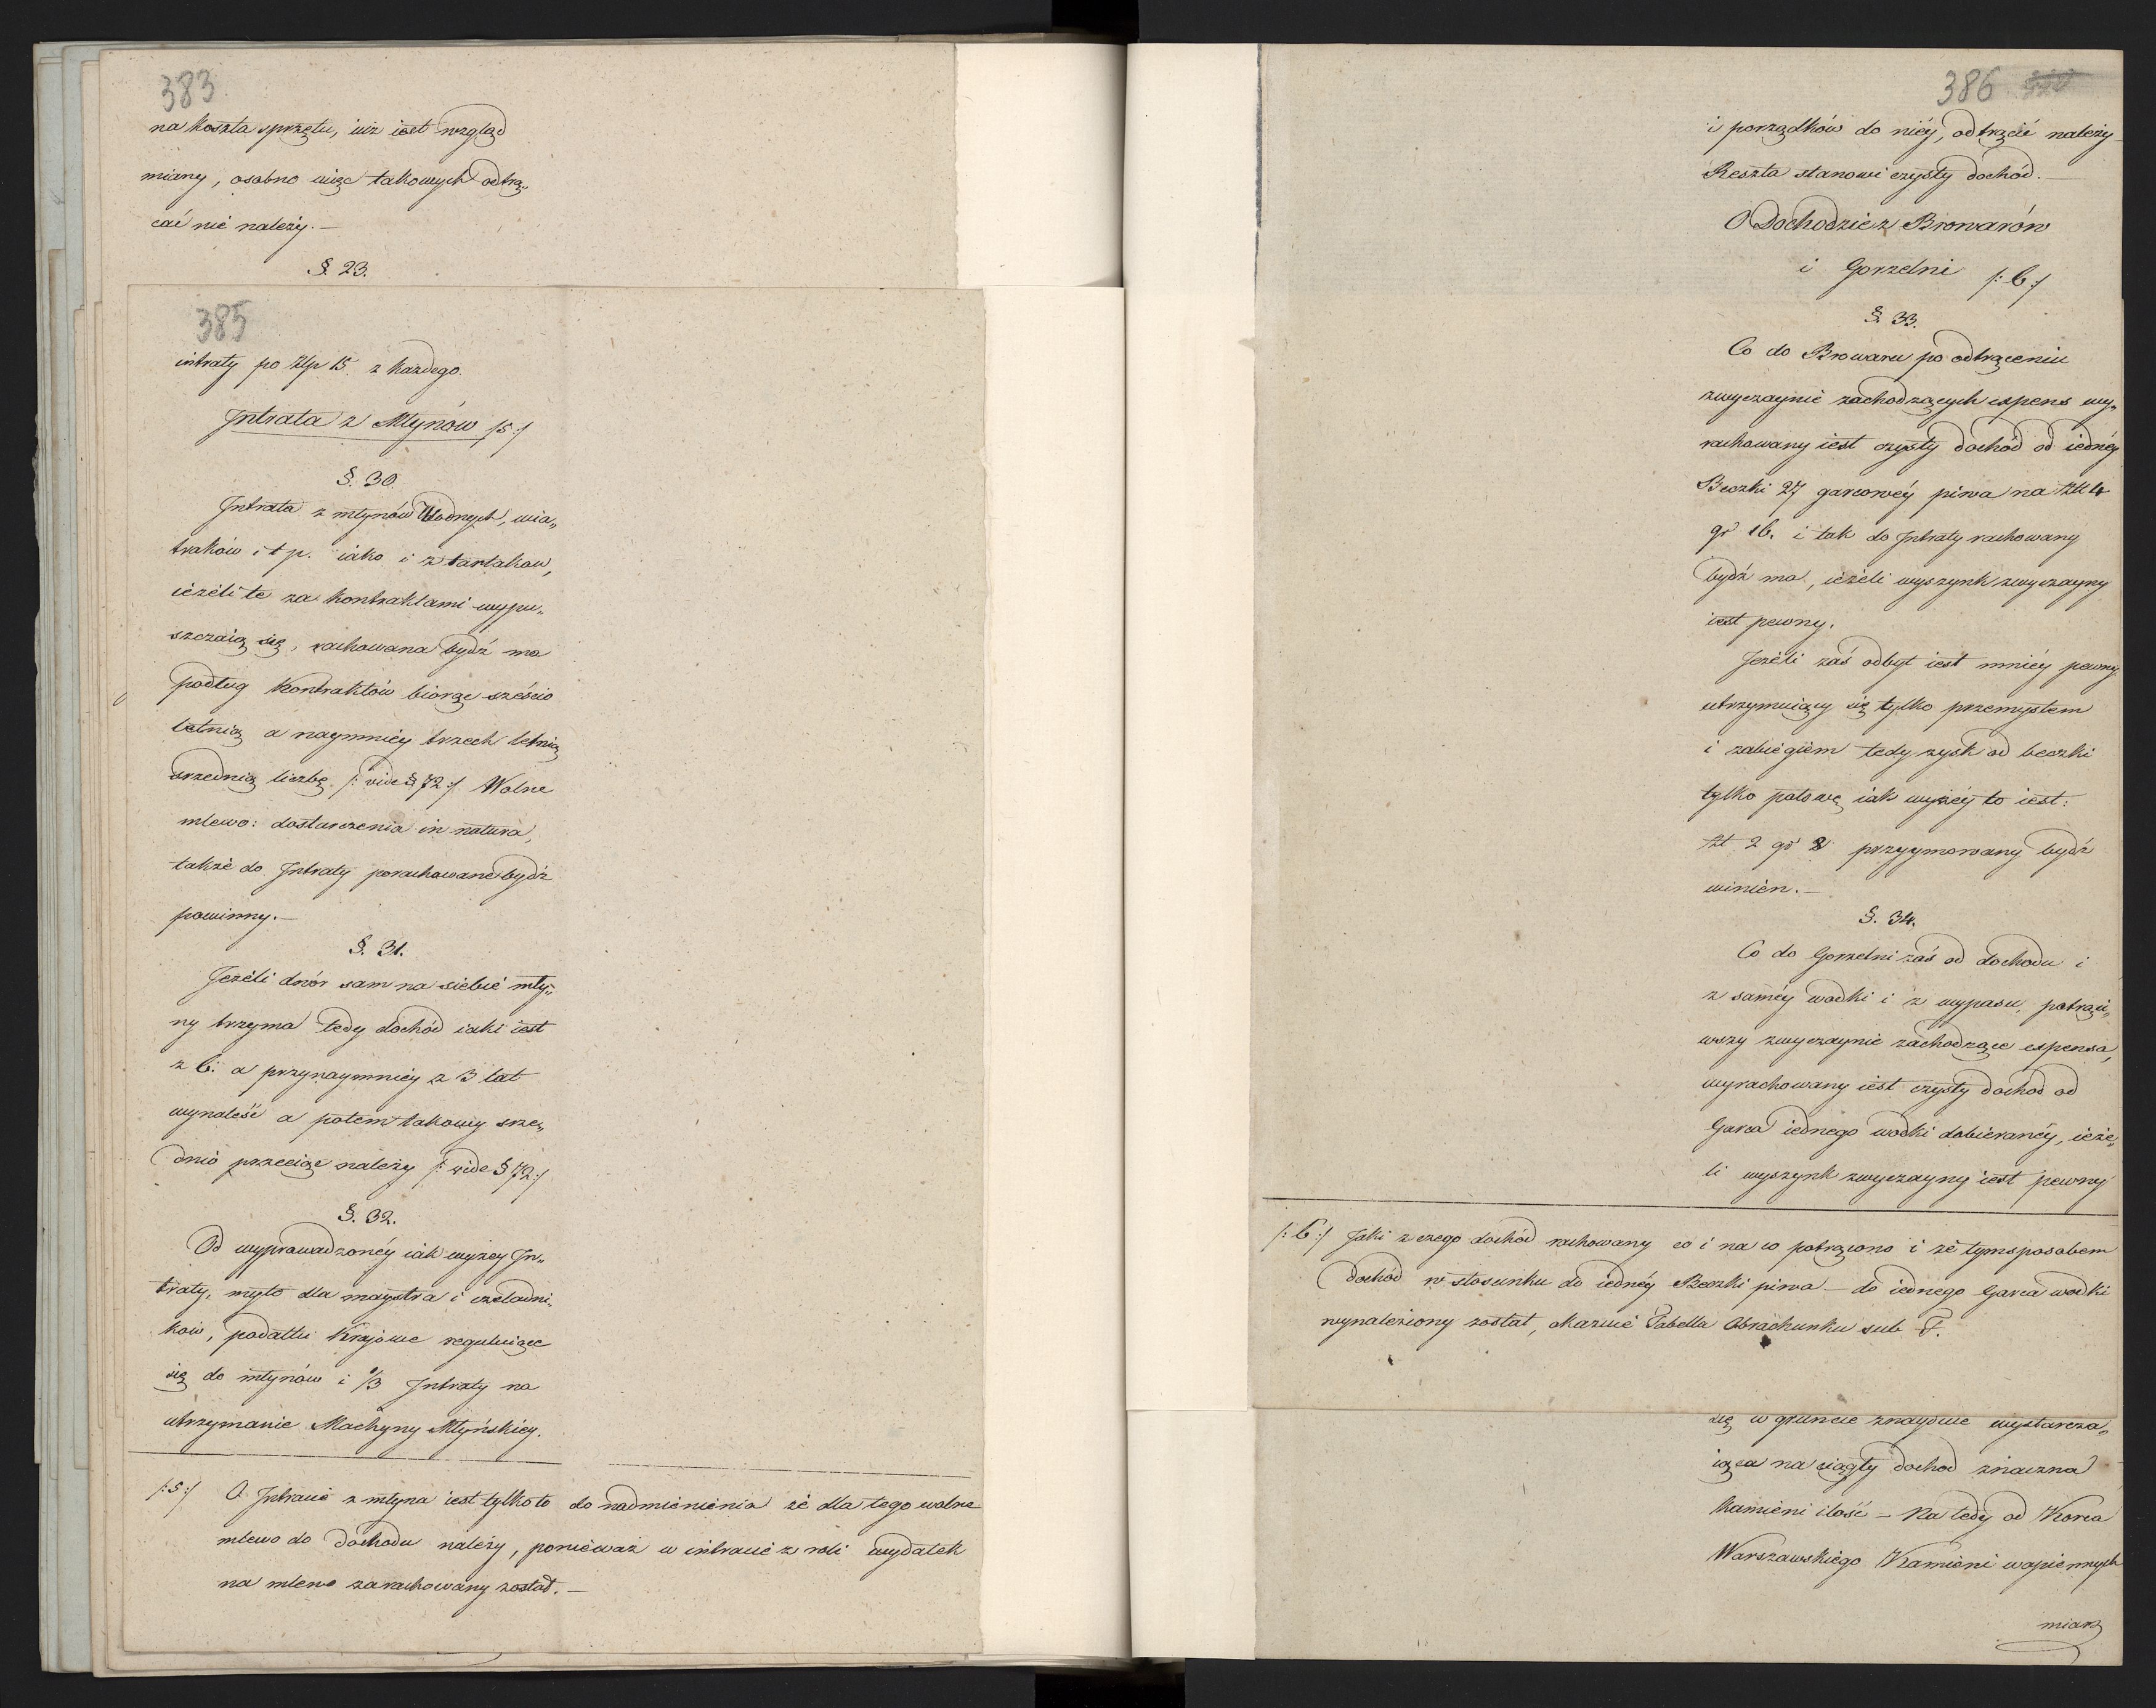 383
na koszta sprzętu, iuż iest wzgląd
miany, osobno więc takowych odtrą„
cać nie należy.—
§. 23.
385
intraty po złp 15. z każdego.
Jntrata z Młynów /:5:/
§. 30.
Jntrata z młynów Wodnych, wia„
traków i t p. iako i z tartakow,
ieżéli te za kontraktami wypu„
szczaią się, rachowana bydź ma
podług Kontraktów biorąc sześcio
letnią a naymniéy trzech letnią
srzednią liczbę /: vide § 72:/ Wolne
mlewo: dostarczenia in natura,
także do Jntraty porachowane bydź
powinny.—
§. 31.
Jeżéli dwór sam na siebie mły„
ny trzyma tedy dochód iaki iest
z 6. a przynaymniéy z 3 lat
wynaleść a potem takowy srze„
dnio przeciąć należy /: vide § 72:/
§. 32.
Od wyprowadzonéy iak wyżey Jn„
traty, myto dla maystra i czeladni„
kow, podatki Krajowe reguluiące
się do młynów i 1/3 Jntraty na
utrzymanie Machyny Młyńskiéy.
/:5:/ O Jntracie z młyna iest tylko to do nadmienienia że dla tego wolne
mlewo do dochodu należy, ponieważ w intracie z roli wydatek
na mlewo zarachowany został.—
386
i porządków do niéy, odtrącić należy
Reszta stanowi czysty dochód.—
O Dochodzie z Browarów
i Gorzelni /:6:/
§. 33.
Co do Browaru po odtrąceniu
zwyczaynie zachodzących expens wy„
rachowany iest czysty dochód od iednéy
Beczki 27 garcowéy piwa na złł 4
gr 16. i tak do Jntraty rachowany
bydź ma, ieżéli wyszynk zwyczayny
iest pewny.
Jeżéli zaś odbyt iest mniéy pewny
utrzymuiący się tylko przemysłem
i zabiegiem tedy zysk od beczki
tylko połowę iak wyżéy to iest:
zł 2 gr 8 przyymowany bydź
winien.—
§. 34.
Co do Gorzelni zaś od dochodu i
z saméy wodki i z wypasu, potrąci„
wszy zwyczaynie zachodzące expensa,
wyrachowany iest czysty dochod od
Garca iednego wodki dobieranéy, ieże„
li wyszynk zwyczayny iest pewny
/:6:/ Jaki z czego dochód rachowany co i na co potrącono i że tymsposobem
dochód w stosunku do iednéy Beczki piwa — do iednego Garca wodki
wynaleziony został, okazuie Tabella Obrachunku sub F.
się w gruncie znayduie wystarcza„
iąca na ciągły dochod znaczna
kamieni ilość — Na tedy od Korca
Warszawskiego Kamieni wapiennych
miarą